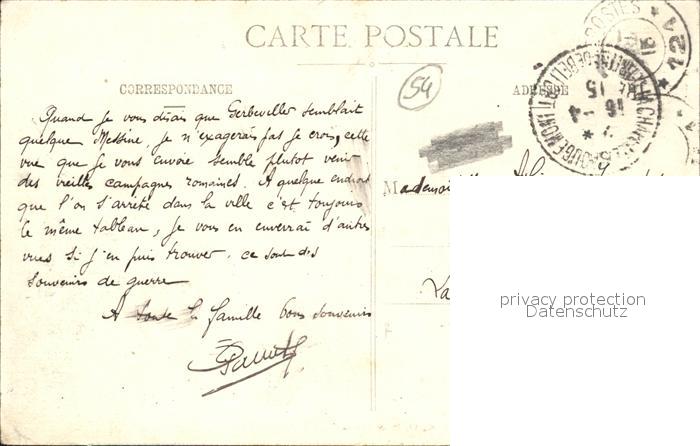 CARTE POSTALE
CORRESPONDANCE
54
ADRESSE
Quand je vous disais que Gerbeviller semblait
quelque Messine, je n'exagerais pas je crois, cette
vue que je vous envoie semble plutot venir
des vieilles campagnes romaines. A quelque endroit
que l'on s'arrête dans la ville c'est toujours
le même tableau, je vous en enverrai d'autres
vues si j'en puis trouver, ce sont des
souvenirs de guerre
A toute la famille bons souvenirs
Mademoi
privacy protection
Datenschutz
POSTES
124
16 - 4
15